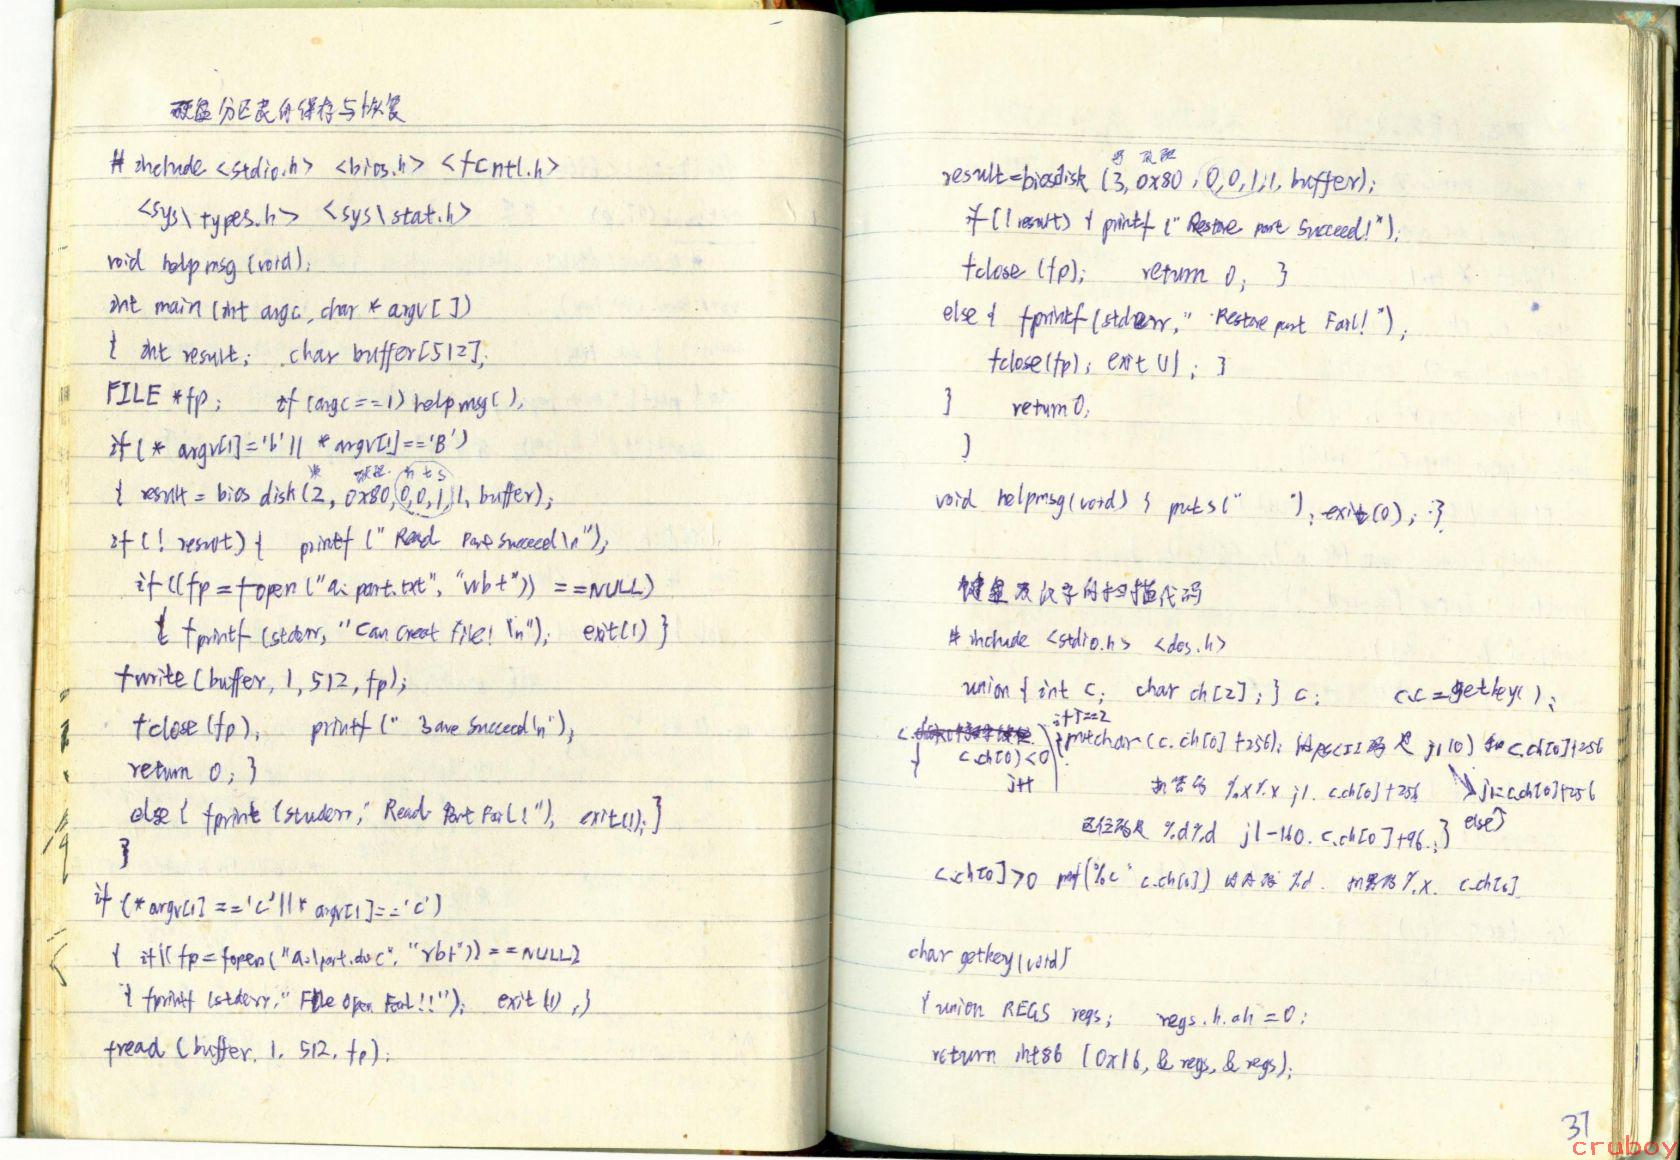 硬盘分区表的保存与恢复
#include <stdio.h> <bios.h> <fcntl.h>
<sys\types.h> <sys\stat.h>
void helpmsg(void);
int main(int argc, char *argv[])
{ int result; char buffer[512];
FILE *fp; if(argc==1) helpmsg();
if(*argv[1]='b'||*argv[1]=='B')
硬盘
{ result = biosdisk(2, 0x80, 0,0,1,1, buffer);
if(! result){ printf("Read Part Succeed\n");
if((fp=fopen("a:part.txt", "wb+")) ==NULL)
{ fprintf(stderr, "Can Creat File! \n"); exit(1) }
fwrite(buffer, 1, 512, fp);
fclose(fp); printf(" Save Succeed\n");
return 0; }
else { fprint(studerr," Read Part Fail!"); exit(1); }
}
if(*argv[1]=='c'||*argv[1]=='c')
{ if((fp=fopen("a:\part.doc", "rb+"))==NULL)
{ fprintf(stderr," File Open Fail!!"); exit(1); }
fread(buffer, 1, 512, fp);
写 硬盘
result=biosdisk(3, 0x80, 0,0,1,1, buffer);
if(!result) { printf(" Restore part Succeed!");
fclose(fp); return 0; }
else { fprintf(stderr," Restore part Fail! ");
fclose(fp); exit(1); }
} return 0;
}
void helpmsg(void) { puts(" "); exit(0); }
键盘及汉字的扫描代码
#include <stdio.h> <dos.h>
union { int c; char ch[2]; } c; c.c=getkey();
if j==2
c.ch[0]<0 { putchar(c.ch[0]+256); 的ASCII码是 j1(0) 和 c.ch[0]+256
j++ 扩写为 %x%x j1. c.ch[0]+256 j1=c.ch[0]+256
区位码是 %d%d j1-160. c.ch[0]+96.; } else
c.ch[0]>0 ptf("%c" c.ch[0]) 的A码 %d. %x. c.ch[0]
char getkey(void)
{ union REGS regs; regs.h.ah=0;
return int86(0x16, &regs, &regs);
37
cruboy